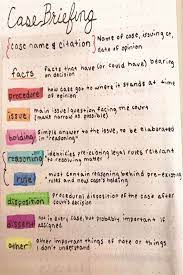 Case Briefing
case name & citation Name of case, issuing ct,
date of opinion
facts facts that have (or could have) bearing
on decision
procedure how case got to where it stands at time
of opinion
issue main issue/question facing the court
(make narrow as possible)
holding simple answer to the issue, to be elaborated
in "reasoning"
reasoning identifies pre-existing legal rules relevant
to resolving matter
rule must contain reasoning behind pre-existing
rules and new case's holding
disposition procedural disposition of the case after
court's decision
dissent not in every case, but probably important if
assigned
other other important things of note or things
I don't understand